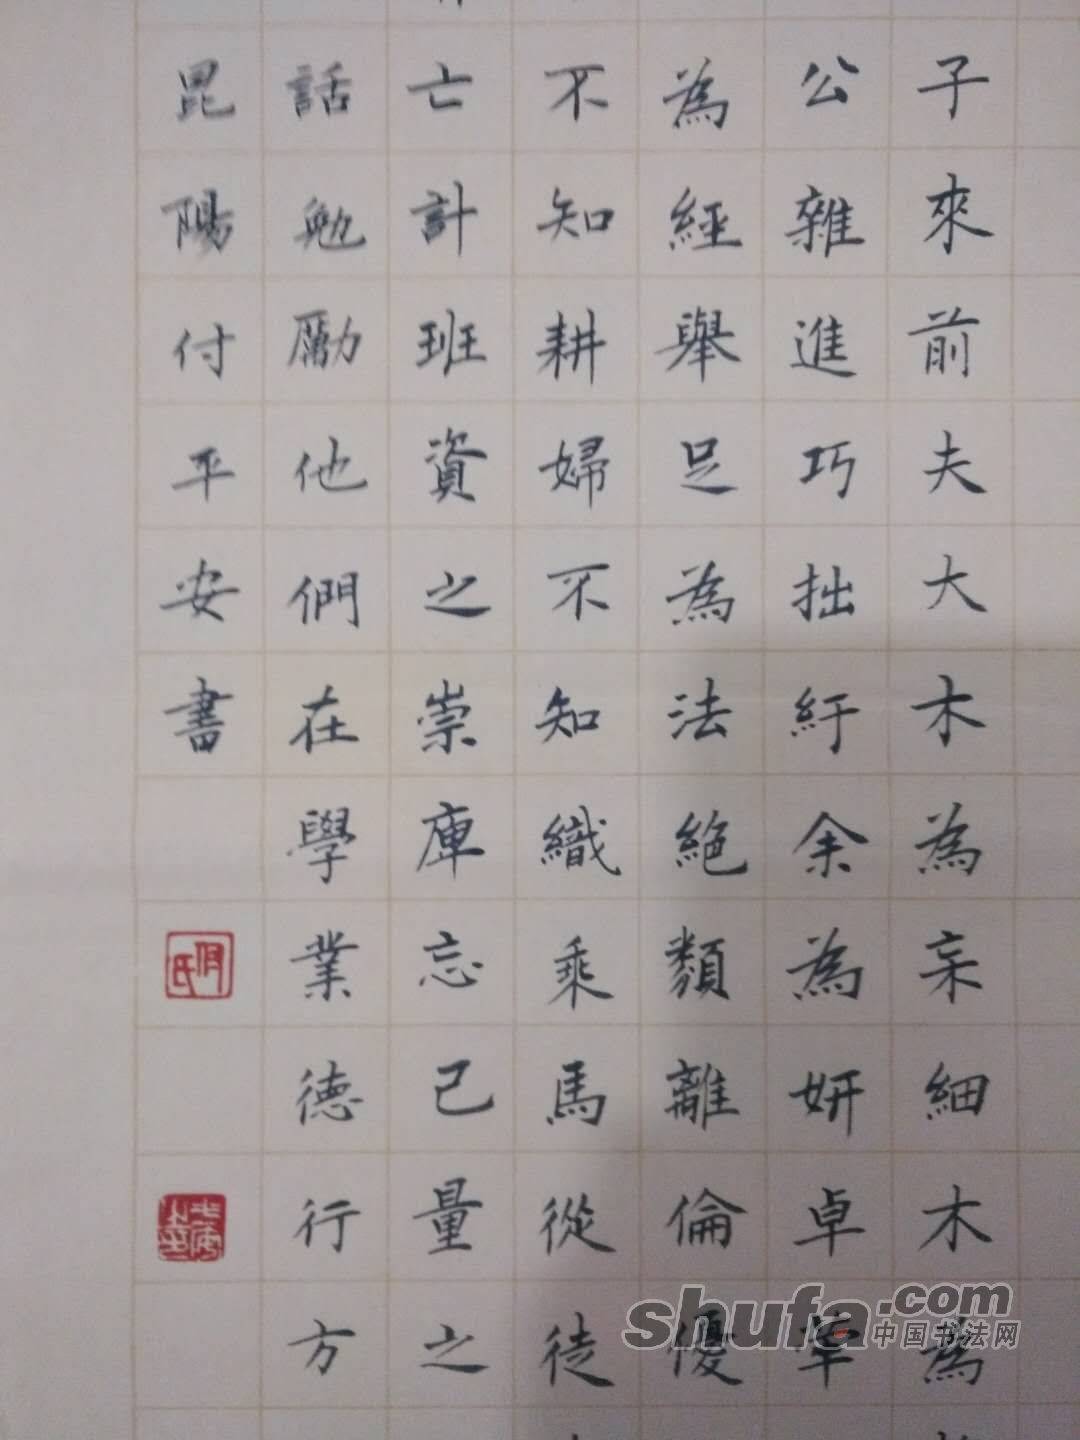 子來前夫大木為杗細木為
公雜進巧拙紆余為妍卓犖
為經舉足為法絕類離倫優
不知耕婦不知織乘馬從徒
亡計班資之崇庳忘己量之
話勉勵他們在學業德行方
昆陽付平安書
付氏
shufa.com
中国书法网